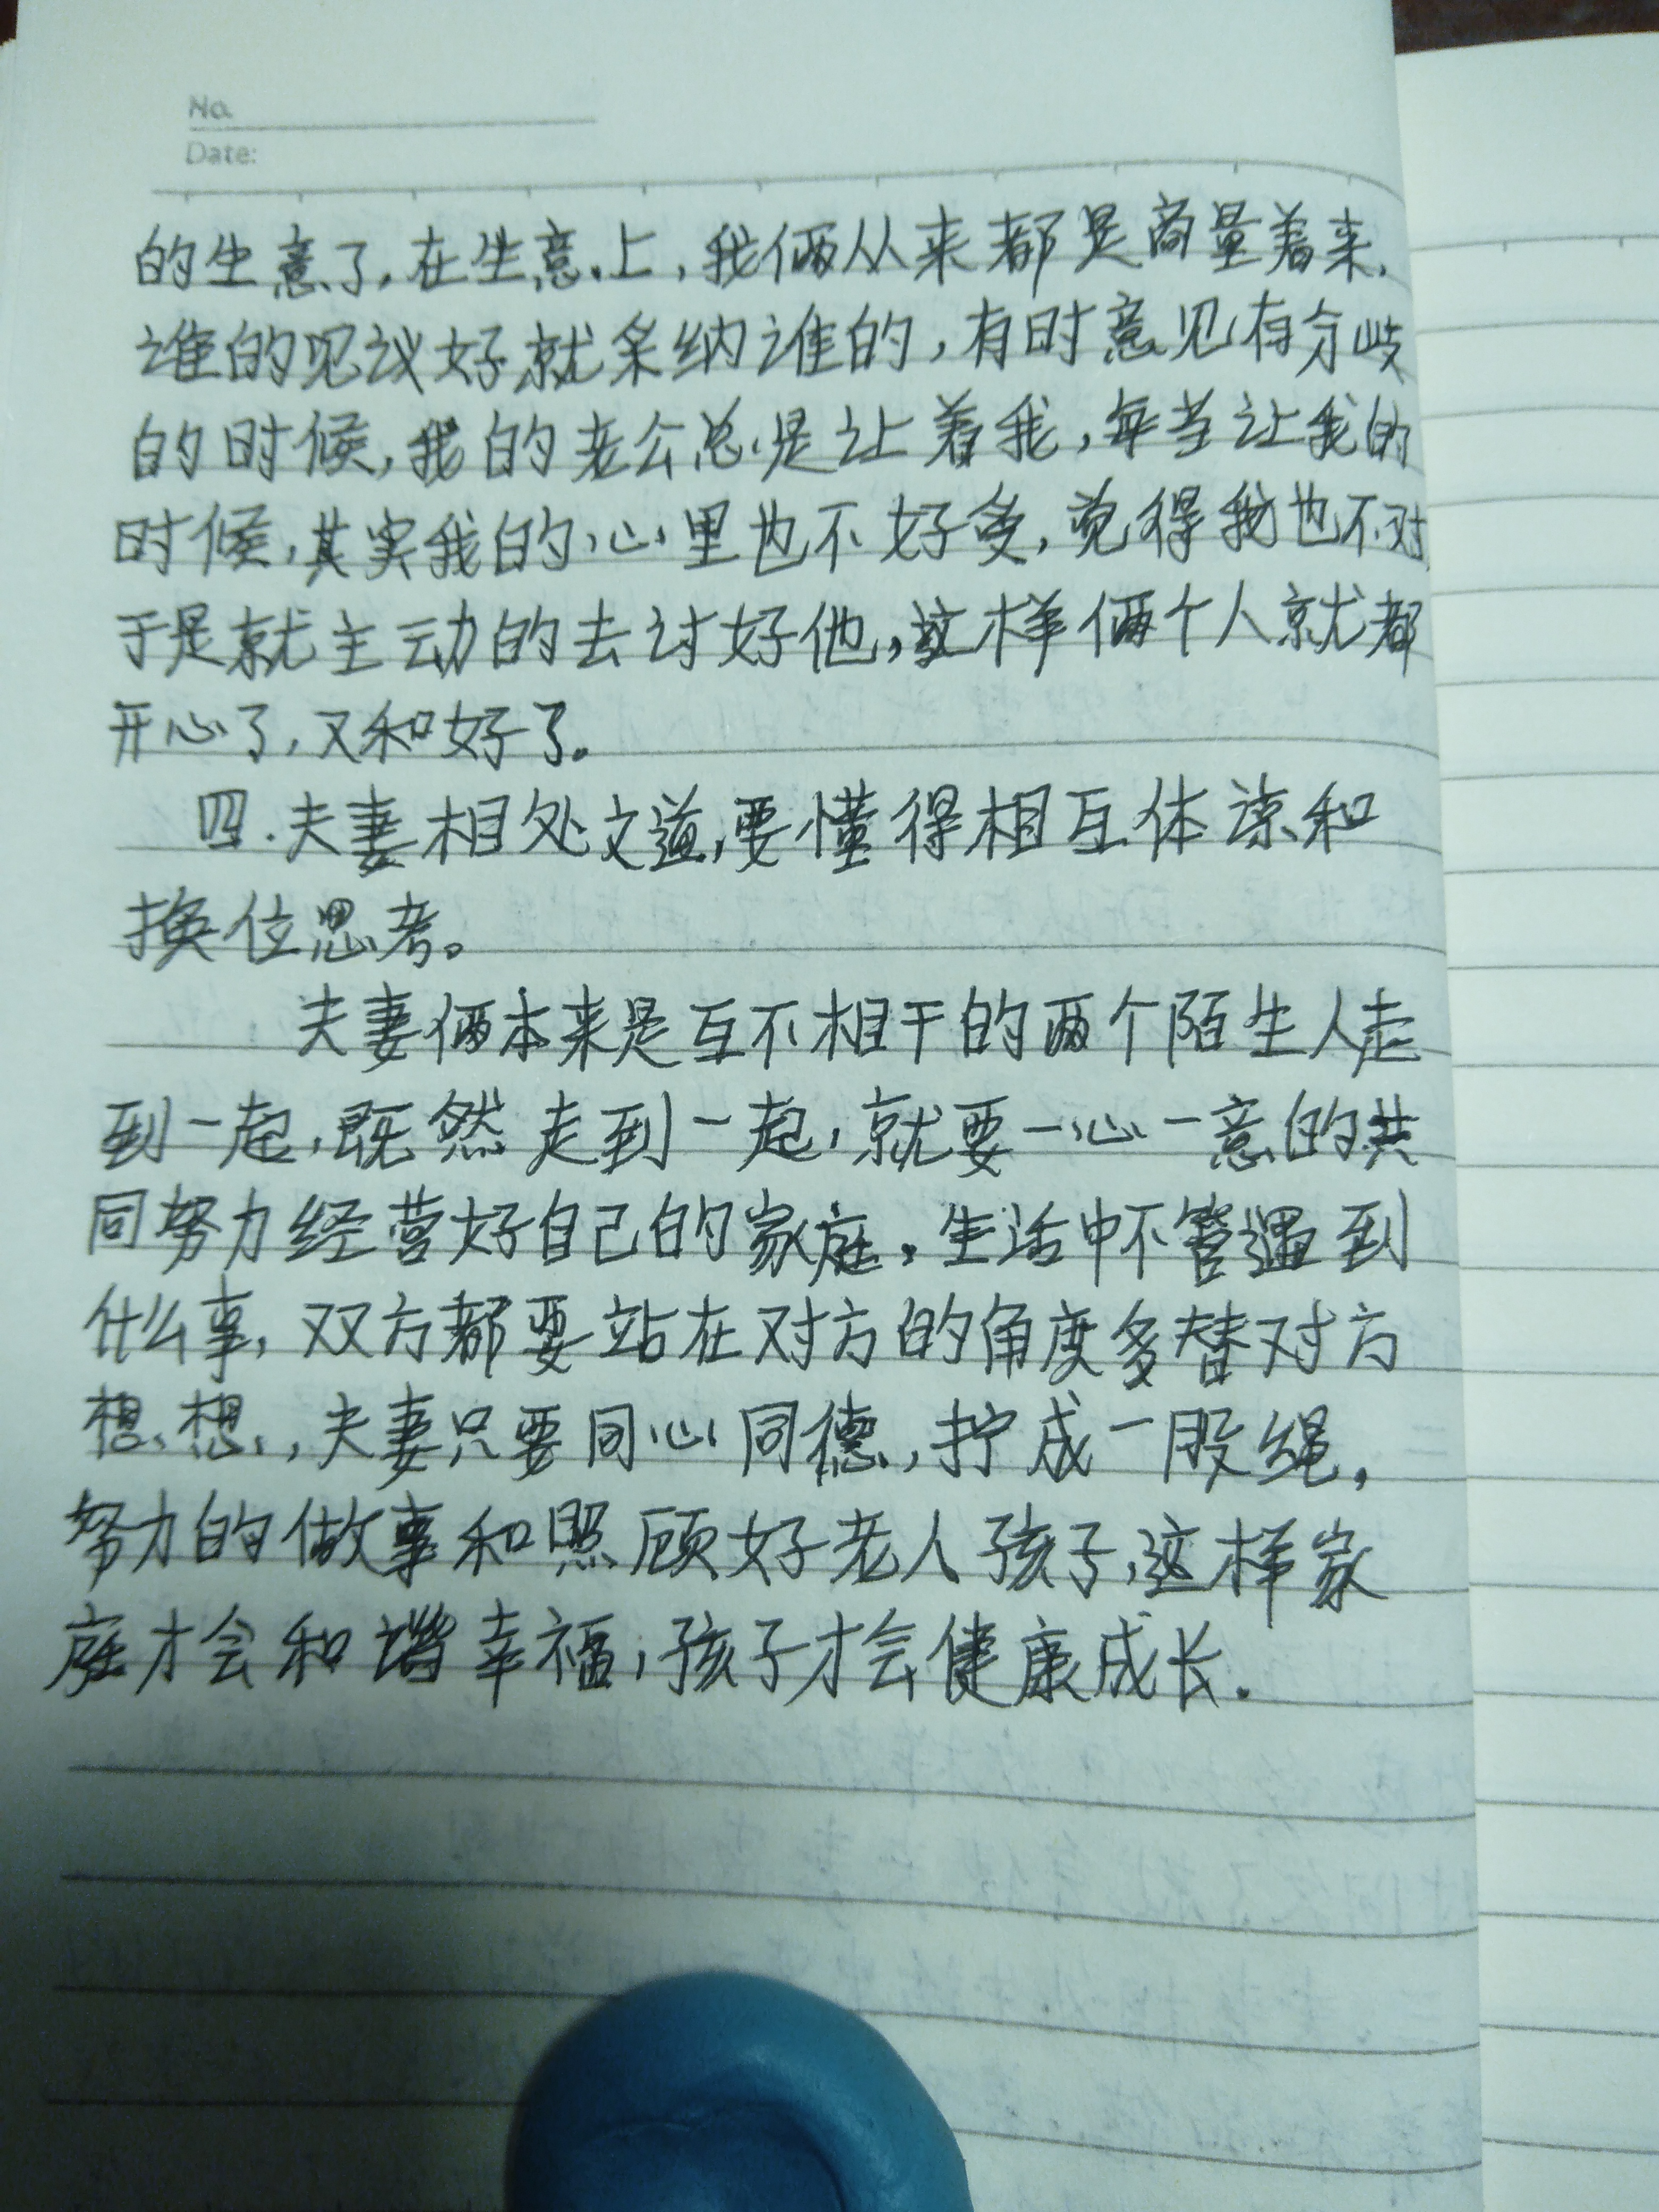 No.
Date:
的生意了,在生意上,我俩从来都是商量着来,
谁的见议好就采纳谁的,有时意见有分歧
的时候,我的老公总是让着我,每当让我的
时候,其实我的心里也不好受,觉得我也不对,
于是就主动的去讨好他,这样俩个人就都
开心了,又和好了。
四.夫妻相处之道,要懂得相互体谅和
换位思考。
夫妻俩本来是互不相干的两个陌生人走
到一起,既然走到一起,就要一心一意的共
同努力经营好自己的家庭,生活中不管遇到
什么事,双方都要站在对方的角度多替对方
想想,夫妻只要同心同德,拧成一股绳,
努力的做事和照顾好老人孩子,这样家
庭才会和谐幸福,孩子才会健康成长.